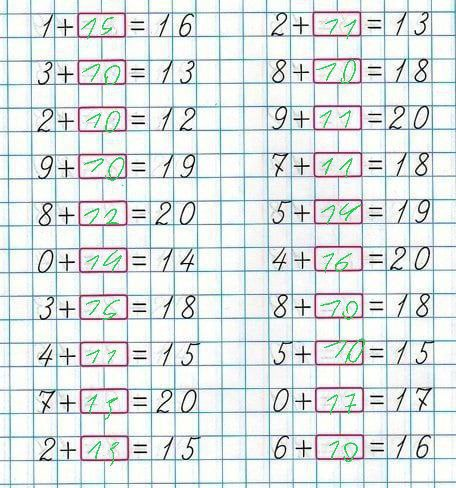 1+15=16 2+11=13
3+10=13 8+10=18
2+10=12 9+11=20
9+10=19 7+11=18
8+12=20 5+14=19
0+14=14 4+16=20
3+15=18 8+10=18
4+11=15 5+10=15
7+13=20 0+17=17
2+13=15 6+10=16